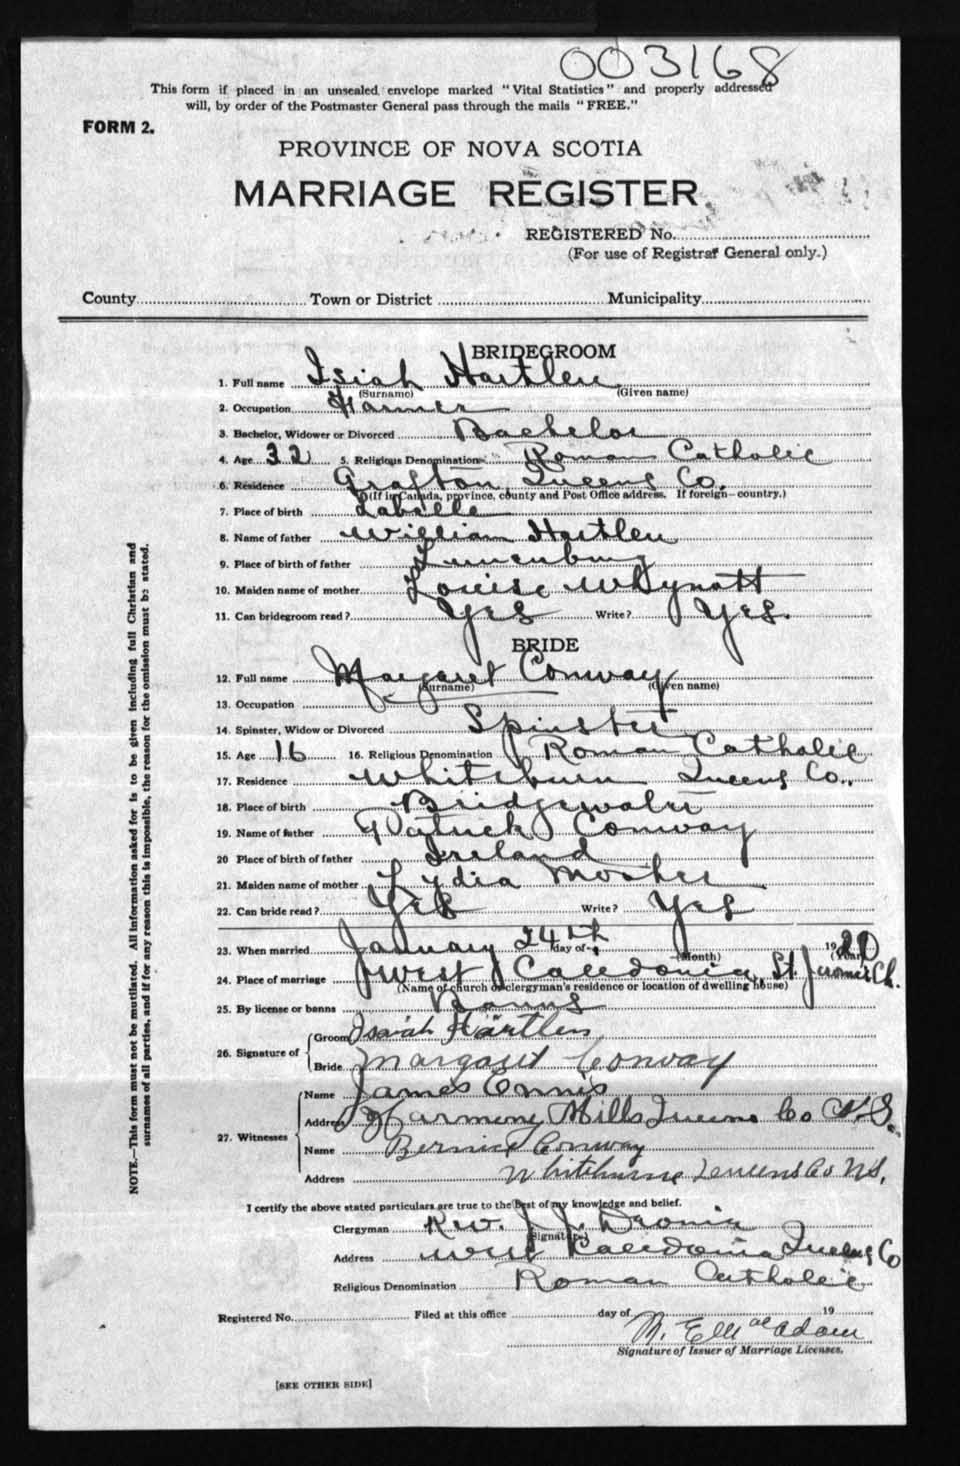 003168
This form if placed in an unsealed envelope marked "Vital Statistics" and properly addressed
will, by order of the Postmaster General pass through the mails "FREE."
FORM 2.
PROVINCE OF NOVA SCOTIA
MARRIAGE REGISTER
REGISTERED No.
(For use of Registrar General only.)
County Town or District Municipality
BRIDEGROOM
1. Full name Isiah Hartlen
(Surname) (Given name)
2. Occupation Farmer
3. Bachelor, Widower or Divorced Bachelor
4. Age 32 5. Religious Denomination Roman Catholic
6. Residence Grafton, Queens Co.
(If in Canada, province, county and Post Office address. If foreign—country.)
7. Place of birth Labelle
8. Name of father William Hartlen
9. Place of birth of father Lunenburg
10. Maiden name of mother Louise Whynott
11. Can bridegroom read? Yes Write? Yes.
BRIDE
12. Full name Margaret Conway
(Surname) (Given name)
13. Occupation
14. Spinster, Widow or Divorced Spinster
15. Age 16 16. Religious Denomination Roman Catholic
17. Residence Whiteburn Queens Co.
18. Place of birth Bridgewater
19. Name of father Patrick Conway
20 Place of birth of father Ireland
21. Maiden name of mother Lydia Mosher
22. Can bride read? Yes Write? Yes
23. When married January 24th day of 1920
(Month) (Year)
24. Place of marriage West Caledonia, St. Jeromes Ch.
(Name of church or clergyman's residence or location of dwelling house)
25. By license or banns Banns
26. Signature of Groom Isaiah Hartlen
Bride Margaret Conway
27. Witnesses Name James Ennis
Address Harmony Mills Queens Co N.S.
Name Bernice Conway
Address Whiteburne Queens Co NS.
I certify the above stated particulars are true to the best of my knowledge and belief.
Clergyman Rev. J. J.
(Signature)
Address West Caledonia Queens Co
Religious Denomination Roman Catholic
Registered No. Filed at this office day of 19
Signature of Issuer of Marriage Licenses.
[SEE OTHER SIDE]
NOTE.—This form must not be mutilated. All information asked for is to be given including full Christian and
surnames of all parties, and if for any reason this is impossible, the reason for the omission must be stated.